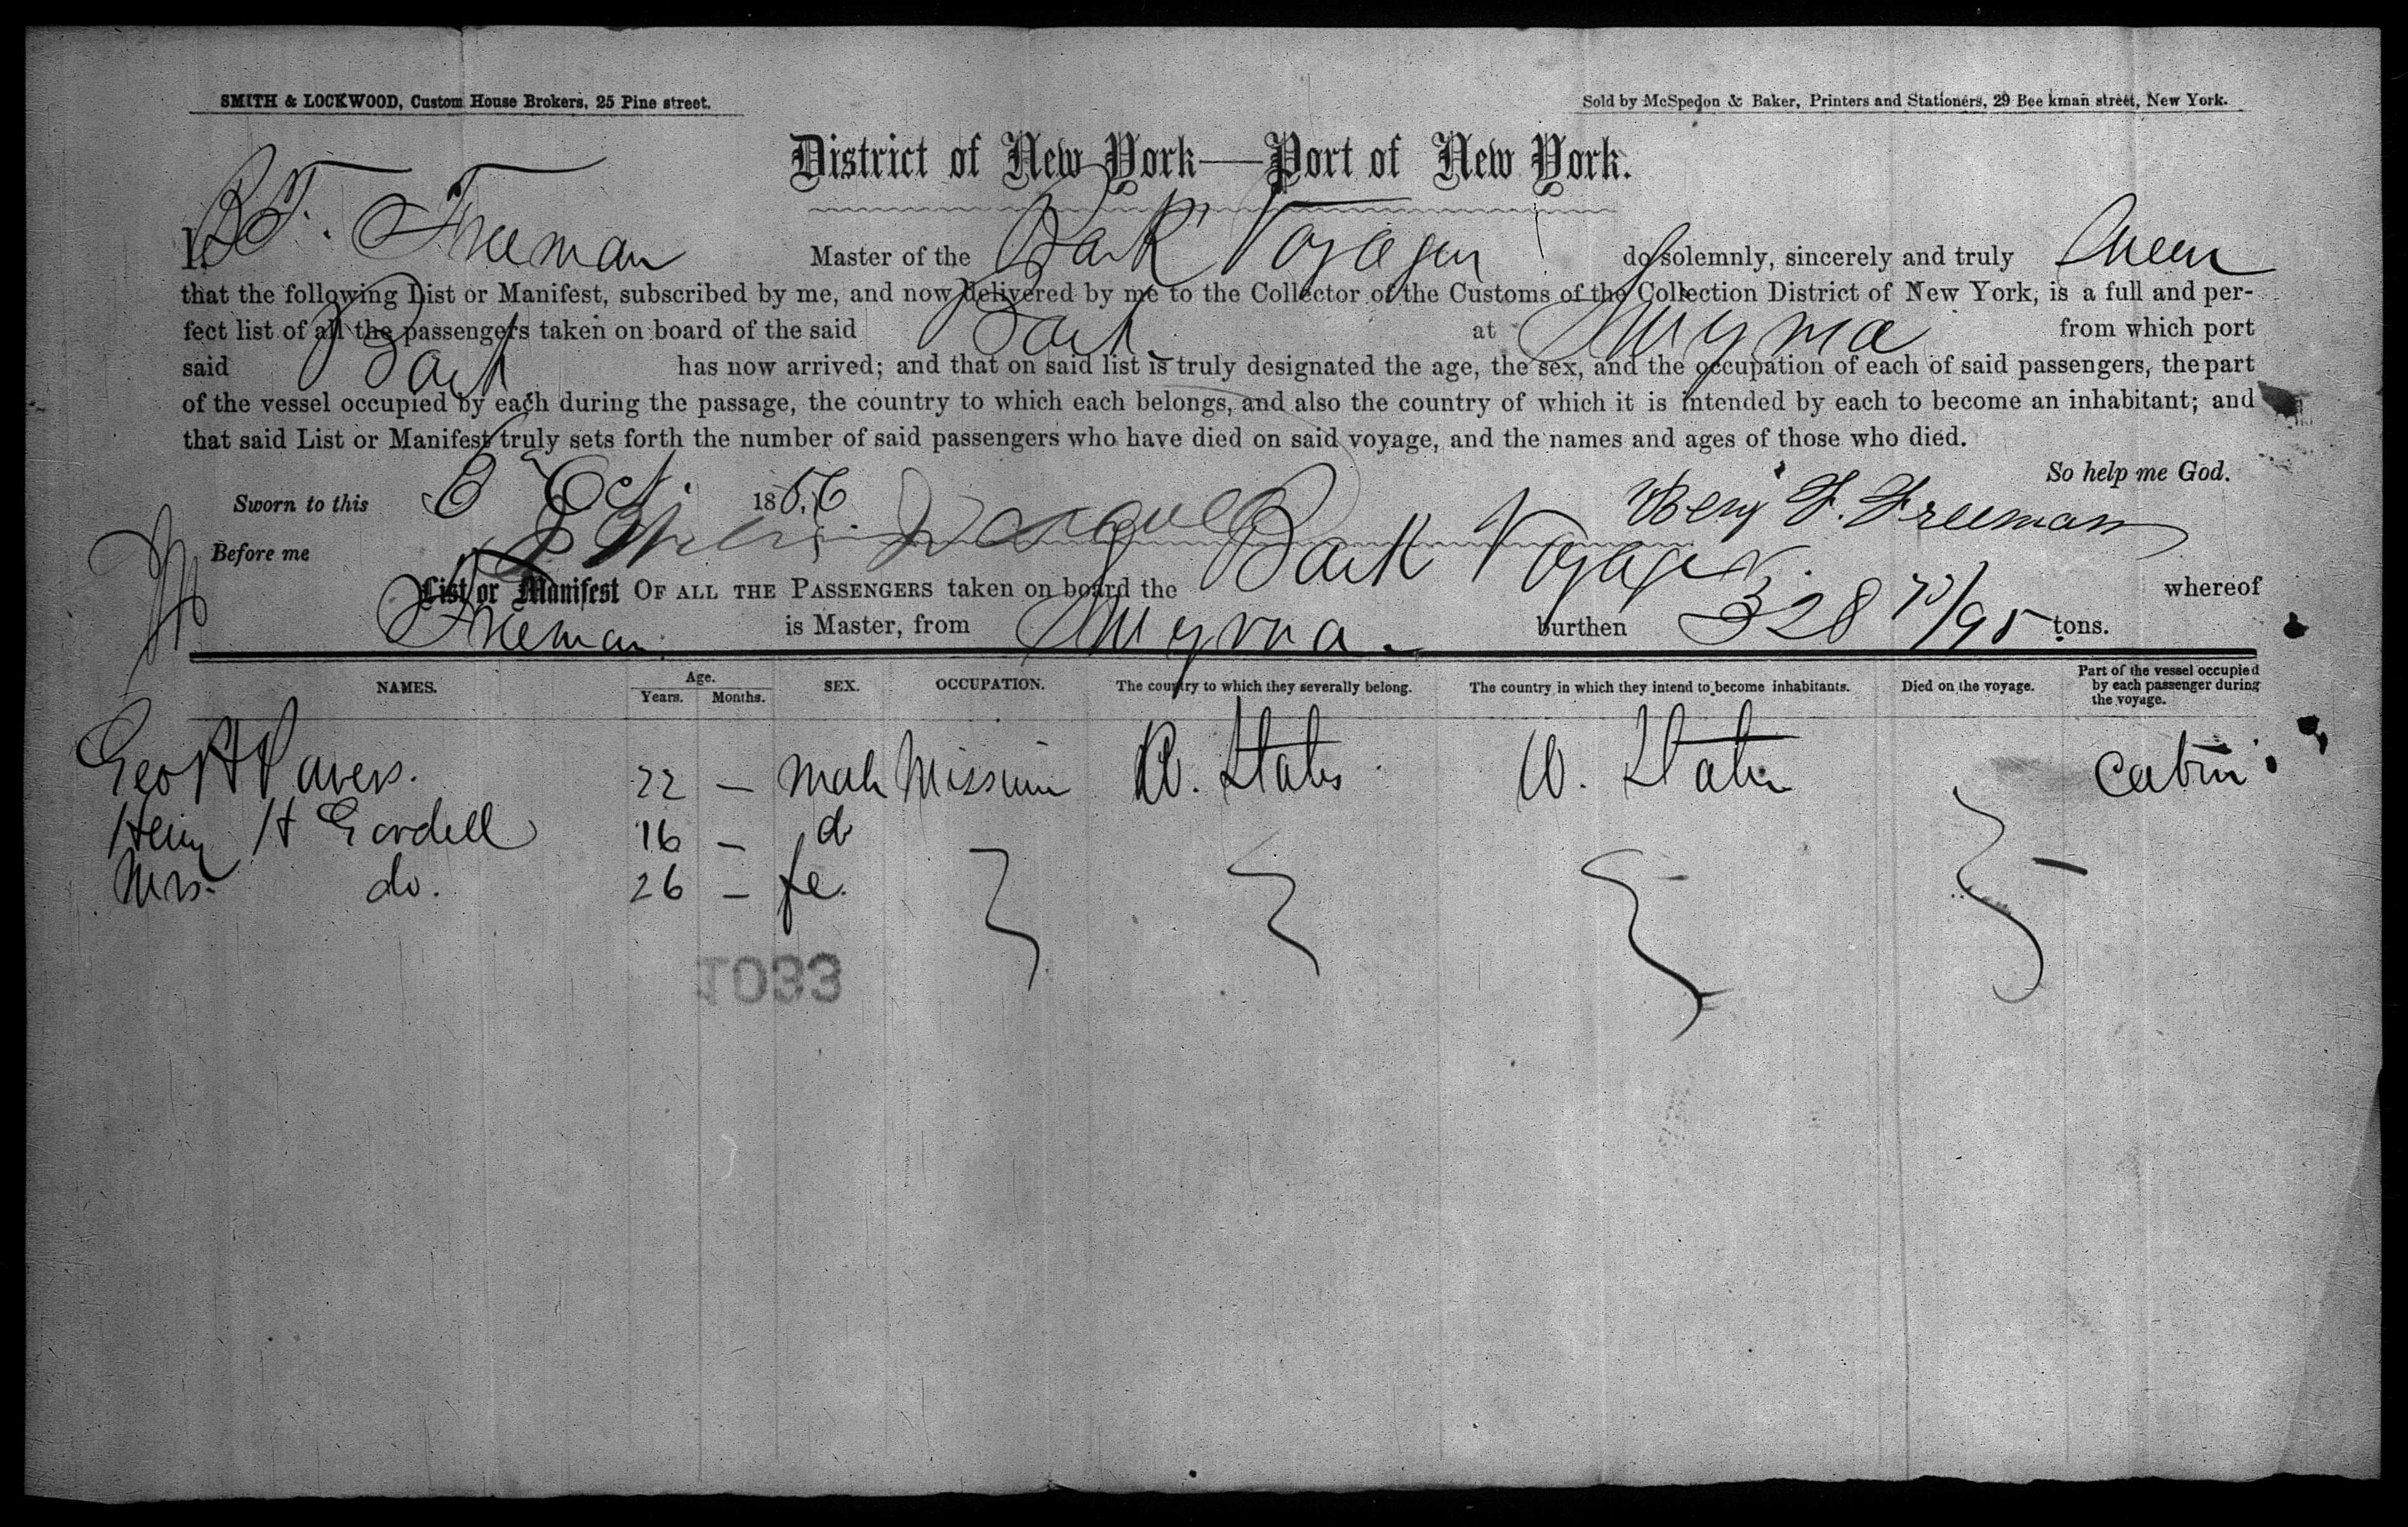 SMITH & LOCKWOOD, Custom House Brokers, 25 Pine street.
Sold by McSpedon & Baker, Printers and Stationers, 29 Beekman street, New York.
District of New York—Port of New York.
I, B F. Freeman Master of the Bark Voyager do solemnly, sincerely and truly Swear
that the following List or Manifest, subscribed by me, and now delivered by me to the Collector of the Customs of the Collection District of New York, is a full and per-
fect list of all the passengers taken on board of the said Bark at Smyrna from which port
said Bark has now arrived; and that on said list is truly designated the age, the sex, and the occupation of each of said passengers, the part
of the vessel occupied by each during the passage, the country to which each belongs, and also the country of which it is intended by each to become an inhabitant; and
that said List or Manifest truly sets forth the number of said passengers who have died on said voyage, and the names and ages of those who died.
So help me God.
Sworn to this 6 Oct. 1856 Benj F. Freeman
Before me
List or Manifest OF ALL THE PASSENGERS taken on board the Bark Voyager whereof
Freeman is Master, from Smyrna. burthen 328 /95 tons.
NAMES. Age. Years. Months. SEX. OCCUPATION. The country to which they severally belong. The country in which they intend to become inhabitants. Died on the voyage. Part of the vessel occupied by each passenger during the voyage.
Geo H 22 — male U. States U. States Cabin
H 16 — do
Mrs. do. 26 — fe.
1033